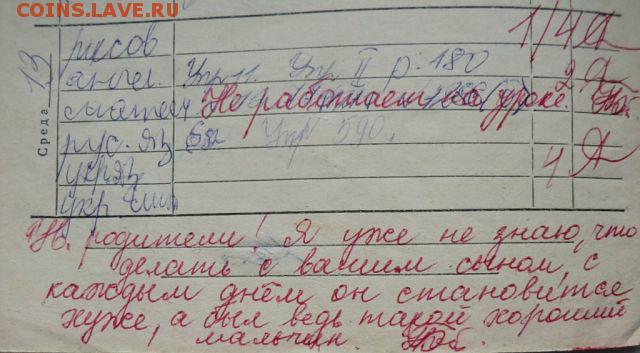 COINS.LAVE.RU
Среда 13
рисов 1/4
англ. Упр 11. Упр II р. 180 2
матем Не работает на уроке.
рус. яз 582 Упр 590.
укр яз 4
укр чит
Ув. родители! Я уже не знаю, что
делать с вашим сыном, с
каждым днём он становится
хуже, а был ведь такой хороший
мальчик.